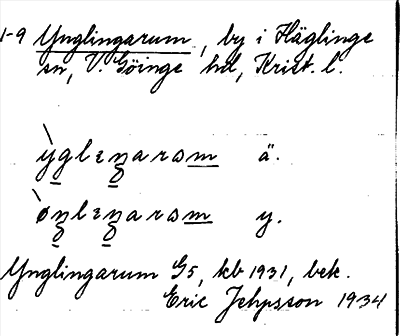 1-9 Ynglingarum, by i Häglinge
sn, V. Göinge hd, Krist. l.
ỳglɛŋarɷm ä.
ø̀ŋlɛŋarɷm y.
Ynglingarum G5, kb 1931, bek.
Eric Jehpsson 1934